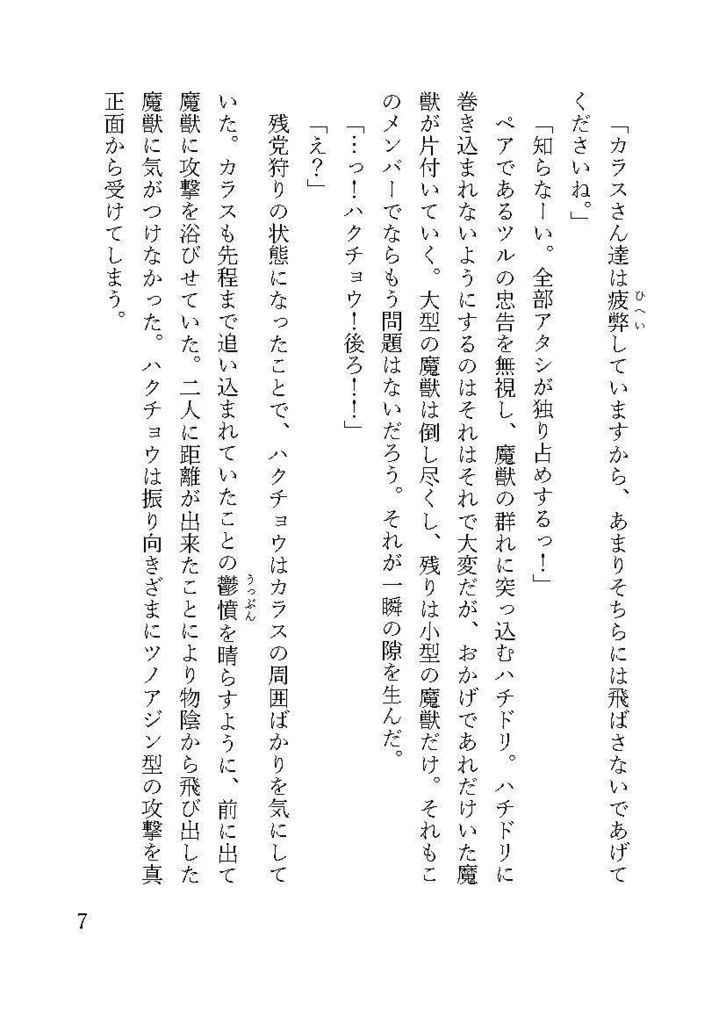 「カラスさん達は疲弊していますから、あまりそちらには飛ばさないであげて
ひへい
くださいね。」
「知らなーい。全部アタシが独り占めするっ！」
ペアであるツルの忠告を無視し、魔獣の群れに突っ込むハチドリ。ハチドリに
巻き込まれないようにするのはそれはそれで大変だが、おかげであれだけいた魔
獣が片付いていく。大型の魔獣は倒し尽くし、残りは小型の魔獣だけ。それもこ
のメンバーでならもう問題はないだろう。それが一瞬の隙を生んだ。
「…っ！ハクチョウ！後ろ！！」
「え？」
残党狩りの状態になったことで、ハクチョウはカラスの周囲ばかりを気にして
いた。カラスも先程まで追い込まれていたことの鬱憤を晴らすように、前に出て
うっぷん
魔獣に攻撃を浴びせていた。二人に距離が出来たことにより物陰から飛び出した
魔獣に気がつけなかった。ハクチョウは振り向きざまにツノアジン型の攻撃を真
正面から受けてしまう。
7